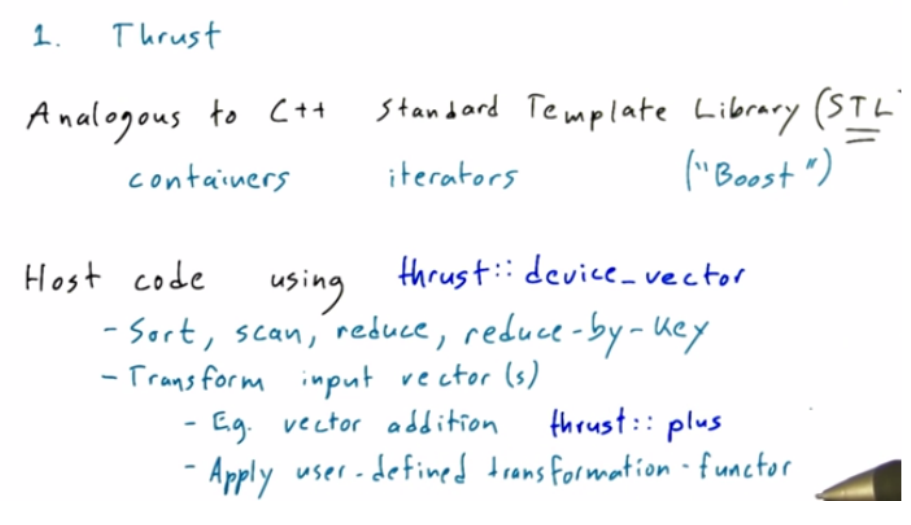 1. Thrust
Analogous to C++ Standard Template Library (STL
containers iterators ("Boost")
Host code using thrust::device_vector
- Sort, scan, reduce, reduce-by-key
- Transform input vector(s)
- E.g. vector addition thrust::plus
- Apply user-defined transformation-functor